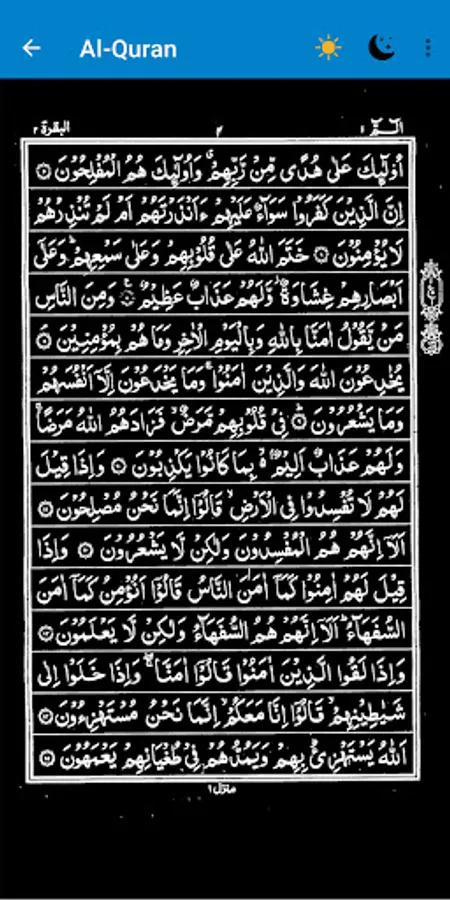 Al-Quran
الٓمّٓ ١ ٢ البقرة ٢
اُولٰٓئِكَ عَلٰى هُدًى مِّنْ رَّبِّهِمْ ۗ وَاُولٰٓئِكَ هُمُ الْمُفْلِحُوْنَ ۝
اِنَّ الَّذِيْنَ كَفَرُوْا سَوَآءٌ عَلَيْهِمْ ءَاَنْذَرْتَهُمْ اَمْ لَمْ تُنْذِرْهُمْ
لَا يُؤْمِنُوْنَ ۝ خَتَمَ اللّٰهُ عَلٰى قُلُوْبِهِمْ وَعَلٰى سَمْعِهِمْ ؕ وَعَلٰٓى
اَبْصَارِهِمْ غِشَاوَةٌ ؗ وَّلَهُمْ عَذَابٌ عَظِيْمٌ ۝ وَمِنَ النَّاسِ
مَنْ يَّقُوْلُ اٰمَنَّا بِاللّٰهِ وَبِالْيَوْمِ الْاٰخِرِ وَمَا هُمْ بِمُؤْمِنِيْنَ ۝
يُخٰدِعُوْنَ اللّٰهَ وَالَّذِيْنَ اٰمَنُوْا ۚ وَمَا يَخْدَعُوْنَ اِلَّآ اَنْفُسَهُمْ
وَمَا يَشْعُرُوْنَ ۝ فِيْ قُلُوْبِهِمْ مَّرَضٌ ۙ فَزَادَهُمُ اللّٰهُ مَرَضًا ۚ
وَلَهُمْ عَذَابٌ اَلِيْمٌ ۢ ۙ بِمَا كَانُوْا يَكْذِبُوْنَ ۝ وَاِذَا قِيْلَ
لَهُمْ لَا تُفْسِدُوْا فِى الْاَرْضِ ۙ قَالُوْٓا اِنَّمَا نَحْنُ مُصْلِحُوْنَ ۝
اَلَآ اِنَّهُمْ هُمُ الْمُفْسِدُوْنَ وَلٰكِنْ لَّا يَشْعُرُوْنَ ۝ وَاِذَا
قِيْلَ لَهُمْ اٰمِنُوْا كَمَآ اٰمَنَ النَّاسُ قَالُوْٓا اَنُؤْمِنُ كَمَآ اٰمَنَ
السُّفَهَآءُ ؕ اَلَآ اِنَّهُمْ هُمُ السُّفَهَآءُ وَلٰكِنْ لَّا يَعْلَمُوْنَ ۝
وَاِذَا لَقُوا الَّذِيْنَ اٰمَنُوْا قَالُوْٓا اٰمَنَّا ۖ وَاِذَا خَلَوْا اِلٰى
شَيٰطِيْنِهِمْ ۙ قَالُوْٓا اِنَّا مَعَكُمْ ۙ اِنَّمَا نَحْنُ مُسْتَهْزِءُوْنَ ۝
اَللّٰهُ يَسْتَهْزِئُ بِهِمْ وَيَمُدُّهُمْ فِيْ طُغْيَانِهِمْ يَعْمَهُوْنَ ۝
منزل ١